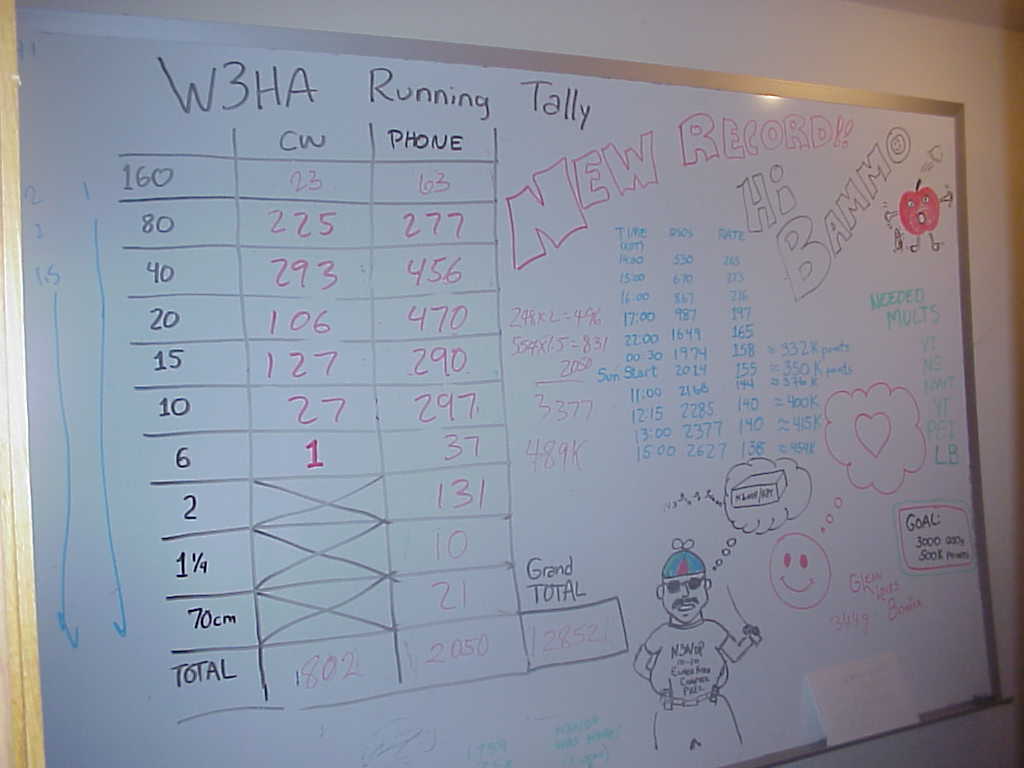 W3HA Running Tally
CW PHONE
160 23 63
80 225 277
40 293 456
20 106 470
15 127 290
10 27 297
6 1 37
2 131
1¼ 10
70cm 21
TOTAL 802 2050
Grand
TOTAL
2852
NEW RECORD!!
Hi
BAMMO
TIME QSOS RATE
14:00 530 265
15:00 670 223
16:00 867 216
17:00 987 197
22:00 1649 165
00:30 1974 158 ≈332K points
Sun Start 2014 155 ≈350K points
11:00 2168 144 ≈376K
12:15 2285 140 ≈400K
13:00 2377 140 ≈415K
15:00 2627 138 ≈459K
248x2=496
554x1.5=831
2050
3377
489K
NEEDED
MULTS
VI
NS
NWT
YT
PEI
LB
GOAL:
3000 QSOs
500K POINTS
GLENN
LOVES
BONNIE
N3NOP
10-10
CHAPTER
PREZ
2 1
1.5